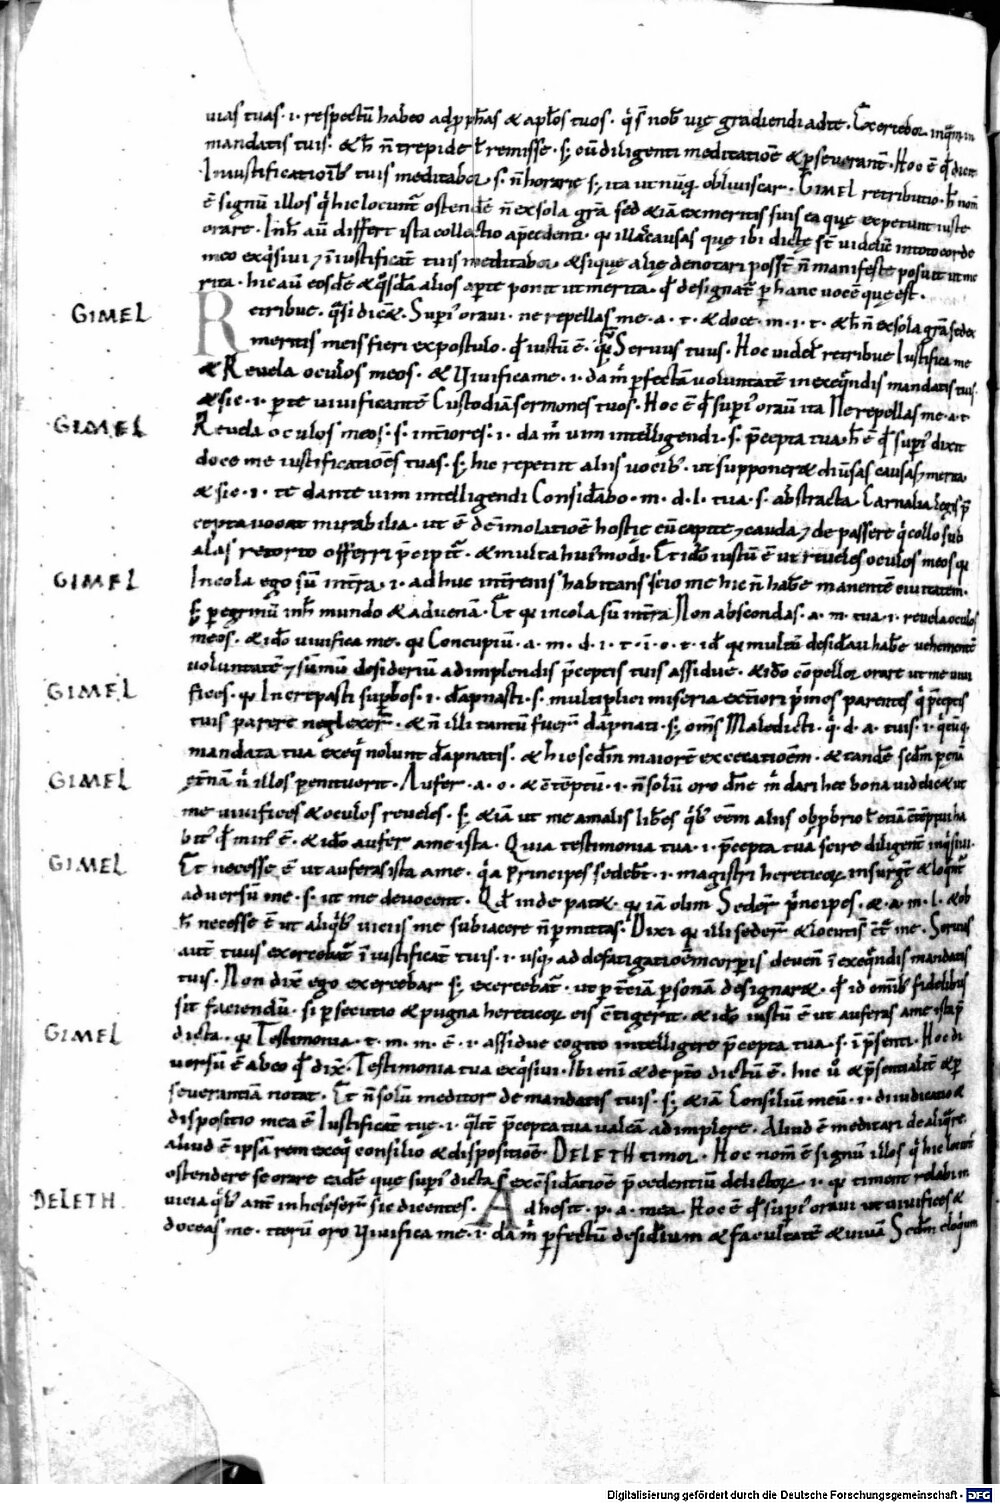 uias tuas · i · respectū habeo ad p̱phas & apl̄os tuos · q̇ s̄ nob̄ uię gradiendi ad te · Exercebor inquā in
mandatis tuis · & h̄ n̄ trepide ł remisse · s; cū diligenti meditatiōe & p̱seuerant̄ · Hoc ē qd̄ dicit
In iustificationib; tuis meditabor · s · n̄ horarie s; ita ut nūq̄ obliuiscar · GIMEL retributio · h̄ nom̄
ē signū illos q̇ hic locunt̄ ostendē n̄ ex sola gr̄a sed & iā ex meritis suis ea quę expetunt iuste
orare · In h̄ aū differt ista collectio a p̄cedenti · qꝛ illa causas quę ibi dictę st̄ uidelic̄ in toto corde
meo exq̇siui ⁊ in iustificat̄ tuis meditabor · & siquę alię denotari poss̄t n̄ manifeste posuit ut me
rita · hic aū eosdē & q̇sdā alios aperte ponit ut merita · qd̄ designat̄ p̱ hanc uocē que est ·
GIMEL Retribue · q̄si dic& · Superi᷒ oraui · ne repellas me · a · t · & doce · m · i · t · & h̄ n̄ ex sola gr̄a sed ex
meritis meis fieri expostulo · qd̄ iustū ē · qꝛ Seruus tuus · Hoc uidel̄ retribue Iustifica me
& Reuela oculos meos · & Viuifica me · i · da m̄ p̱fectā voluntatē in exeq̄ndis mandatis tuis ·
& sic · i · p̱ te uiuificantē Custodiā sermones tuos · Hoc ē qd̄ superi᷒ oraū ita Ne repellas me · a · t
GIMEL Reuela oculos meos · s · inteřiores · i · da m̄ uim intelligendi · s · p̄cepta tua · h̄ ē qd̄ superi᷒ dixit
doce me iustificatiōes tuas · s; hic repetit aliis uocib; · ut supponer& diūsas causas ⁊ merita
& sic · i · te dante uim intelligendi Considābo · m · d · l · tua · s · abstracta Carnalia legis p̄
cepta uocat mirabilia · ut ē de imolatiōe hostię cū capite ⁊ cauda ⁊ de passere q̇ collo sub
alas retorto offerri p̄cipit̄ · & multa hui᷒modi · Et idō iustū ē ut reueles oculos meos qꝛ
GIMEL Incola ego sū in tr̄a · i · adhuc in tr̄enis habitans scio me hic n̄ habe᷒ manentē ciuitatem ·
s; p̱egrinū in h̄ mundo & aduenā · Et qꝛ incola sū in tr̄a Non abscondas · a · m · tua · i · reuela oculos
meos · & idō uiuifica me · qꝛ Concupiū · a · m · d · i · t · i · o · t · id̄ qꝛ multū desid̄aui hab̄e uehementē
voluntatē ⁊ sūmū desideriū adimplendis p̄ceptis tuis assidue · & idō cōpellor orare ut me uiui
GIMEL fices · qꝛ Increpasti sup̱bos · i · dāpnasti · s · multiplici miseria exteřiori p̄mos parentes q̇ p̄ceptis
tuis parere neglexer̄ · & n̄ illi tantū fuer̄ dāpnati · s; om̄s Maledicti · q̇ · d · a · tuis · i · q̇cūq̨
mandata tua exeq̇ nolunt dāpnatis · & hi oscdm̄ maiorē execratioēm · & tandē scdm̄ penā
GIMEL et̄nā n̄ illos penituerit · Aufer · a · o · & cētēptū · i · n̄ solū oro dn̄e m̄ dari hec bona uid̄ dic& ut
me uiuifices & oculos reueles · s; & iā ut me a malis lib̄es q̇b; eēm aliis obp̱brio ł etiā cētēptui ha
bit᷒ qd̄ mih̄ ē · & idō aufer a me ista · Quia testimonia tua · i · p̄cepta tua scire diligent̄ inq̇siui ·
GIMEL Et necesse ē ut auferas ista a me · q̇a Principes sedebt̄ · i · magistri hereticoꝝ insurgt̄ & loq̄nt̄
aduersū me · s · ut me deuocent · Qd̄ inde pat& · qꝛ iā olim Seder̄ p̄ncipes · & · a · m · l · & ob
h̄ necesse ē ut aliq̇b; uiciis me subiacere n̄ p̱mittas · Dixi qꝛ illi seder̄ & locuti st̄ cōt̄ me · Seruus
aut̄ tuus exercebat̄ ī iustificat̄ tuis · i · usq̨ ad defatigatioēm corp̱is deuen̄ ī exeq̄ndis mandatis
tuis · Non dix̄ ego exercebar s; exercebat̄ · ut p̱ t̄ciā p̱sonā designar& · qd̄ id om̄ib; fidelibus
sit faciendū · si p̱secutio & pugna hereticoꝝ eis cōtigerit · & idō iustū ē ut auferas a me ista p̄
GIMEL dicta · qꝛ Testimonia · t · m · m · ē · i · assidue cogito intelligere p̄cepta tua · s · ī p̄senti · Hoc di
uersū ē ab eo qd̄ dix̄ · Testimonia tua exq̇siui · Ibi eni & de p̄t̄o dictū ē · hic ū & p̄sentialit̄ & p̱
seuerantiā notat · Et n̄ solū meditor de mandatis tuis · s; & iā Consiliū meū · i · diiudicatio &
dispositio mea ē Iustificat̄ tuę · i · q̄lit̄ p̄cepta tua ualeā adimplere · Aliud ē meditari de aliq̄ re
aliud ē ipsā rem exeq̇ consilio & dispositiōe · DELETH timor · Hoc nom̄ ē signū illos q̇ hic locunt̄
ostendere se orare eadē que superi᷒ dicta s̄t ex cēsid̄atiōe p̄cedentiū delictoꝝ · i · qꝛ timent relabi in
DELETH uicia q̇b; ante inheser̄ sic dicentes · Adhesit · p · a · mea · Hoc ē qd̄ superi᷒ oraui ut uiuifices &
doceas me · iteřū oro Viuifica me · i · da m̄ p̱fectū desid̄ium & facultatē & uiuā Scdm̄ eloquiū
Digitalisierung gefördert durch die Deutsche Forschungsgemeinschaft - DFG